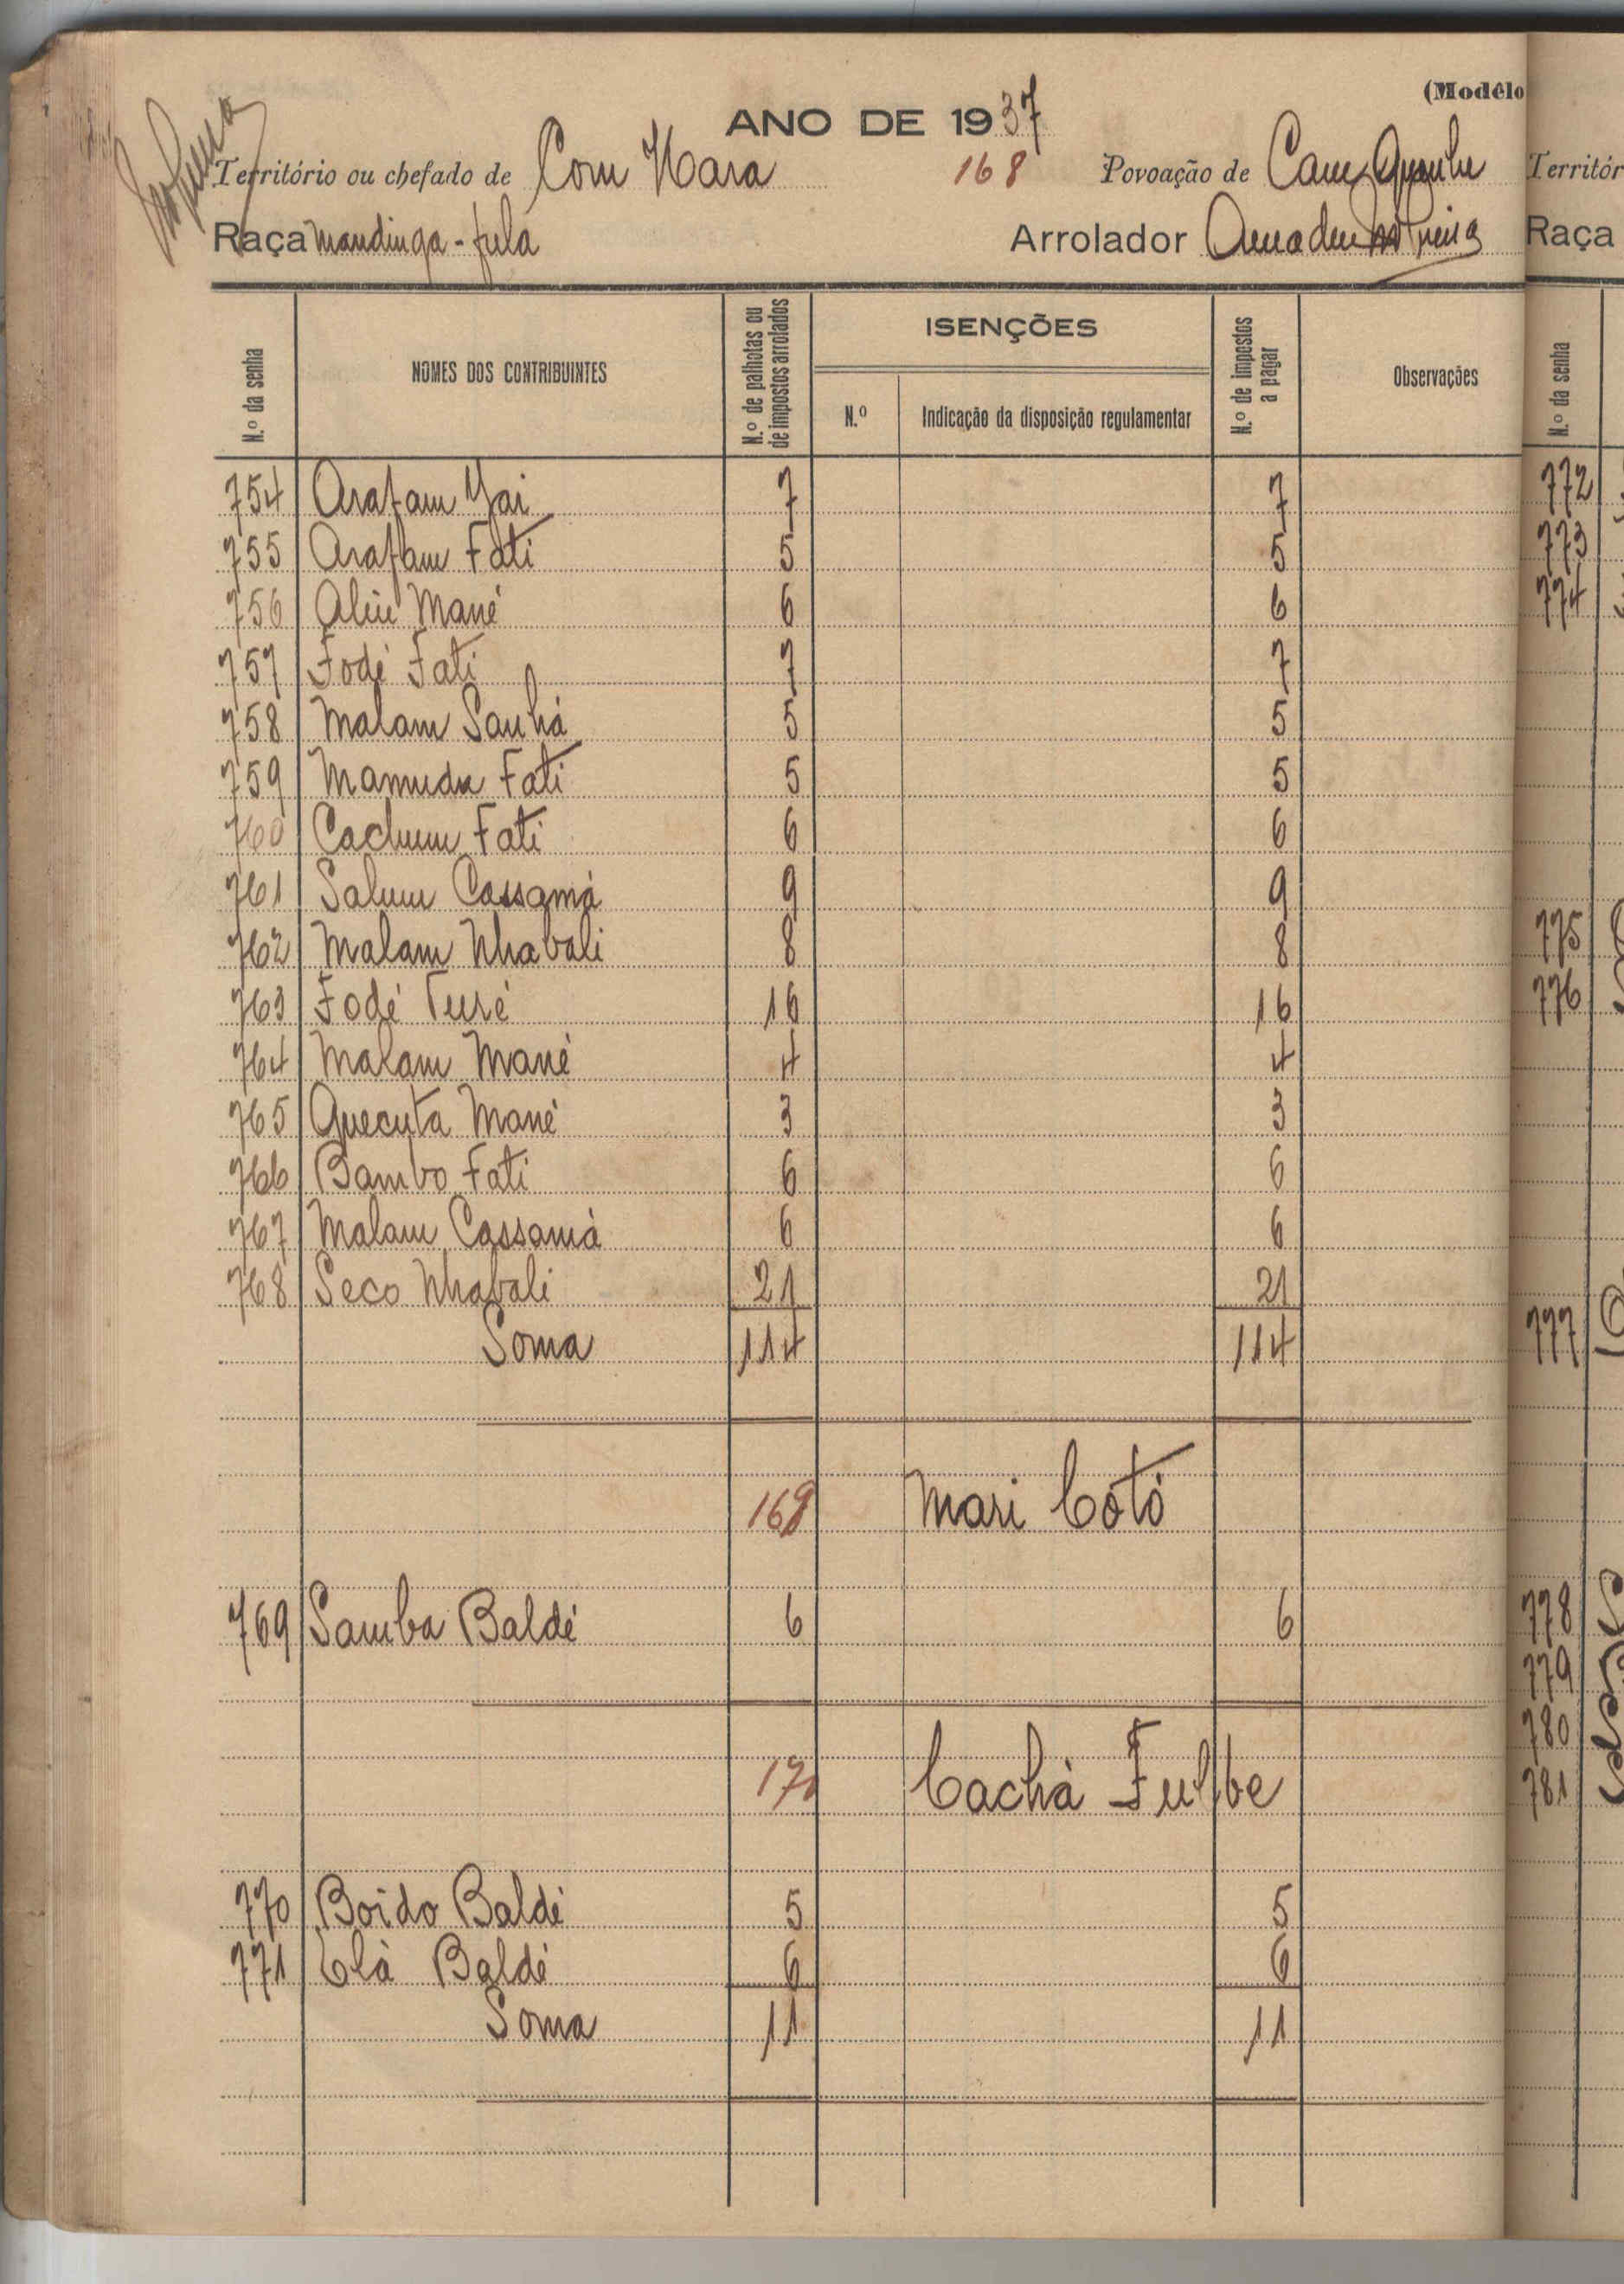 (Modêlo
ANO DE 1937
Território ou chefado de Com Hara 168 Povoação de Cam Quenhe
Raça Mandinga - fula Arrolador Amadeu
N.º da senha
NOMES DOS CONTRIBUINTES
N.º de palhotas ou de impostos arrolados
ISENÇÕES
N.º
Indicação da disposição regulamentar
N.º de impostos a pagar
Observações
754 Arafam Jai 7 7
755 Arafam Fati 5 5
756 Aliu Mané 6 6
757 Fodé Fati 7 7
758 Malam Sanhá 5 5
759 Mamudu Fati 5 5
760 Cachum Fati 6 6
761 Salum Cassamá 9 9
762 Malam Nhabali 8 8
763 Fodé Turé 16 16
764 Malam Mané 4 4
765 Quecuta Mané 3 3
766 Bambo Fati 6 6
767 Malam Cassamá 6 6
768 Seco Nhabali 21 21
Soma 114 114
169 Mari Cotó
769 Samba Baldé 6 6
170 Cachá Fulbe
770 Boido Baldé 5 5
771 Elá Baldé 6 6
Soma 11 11
Territór
Raça
N.º da senha
772
773
774
775
776
777
778
779
780
781